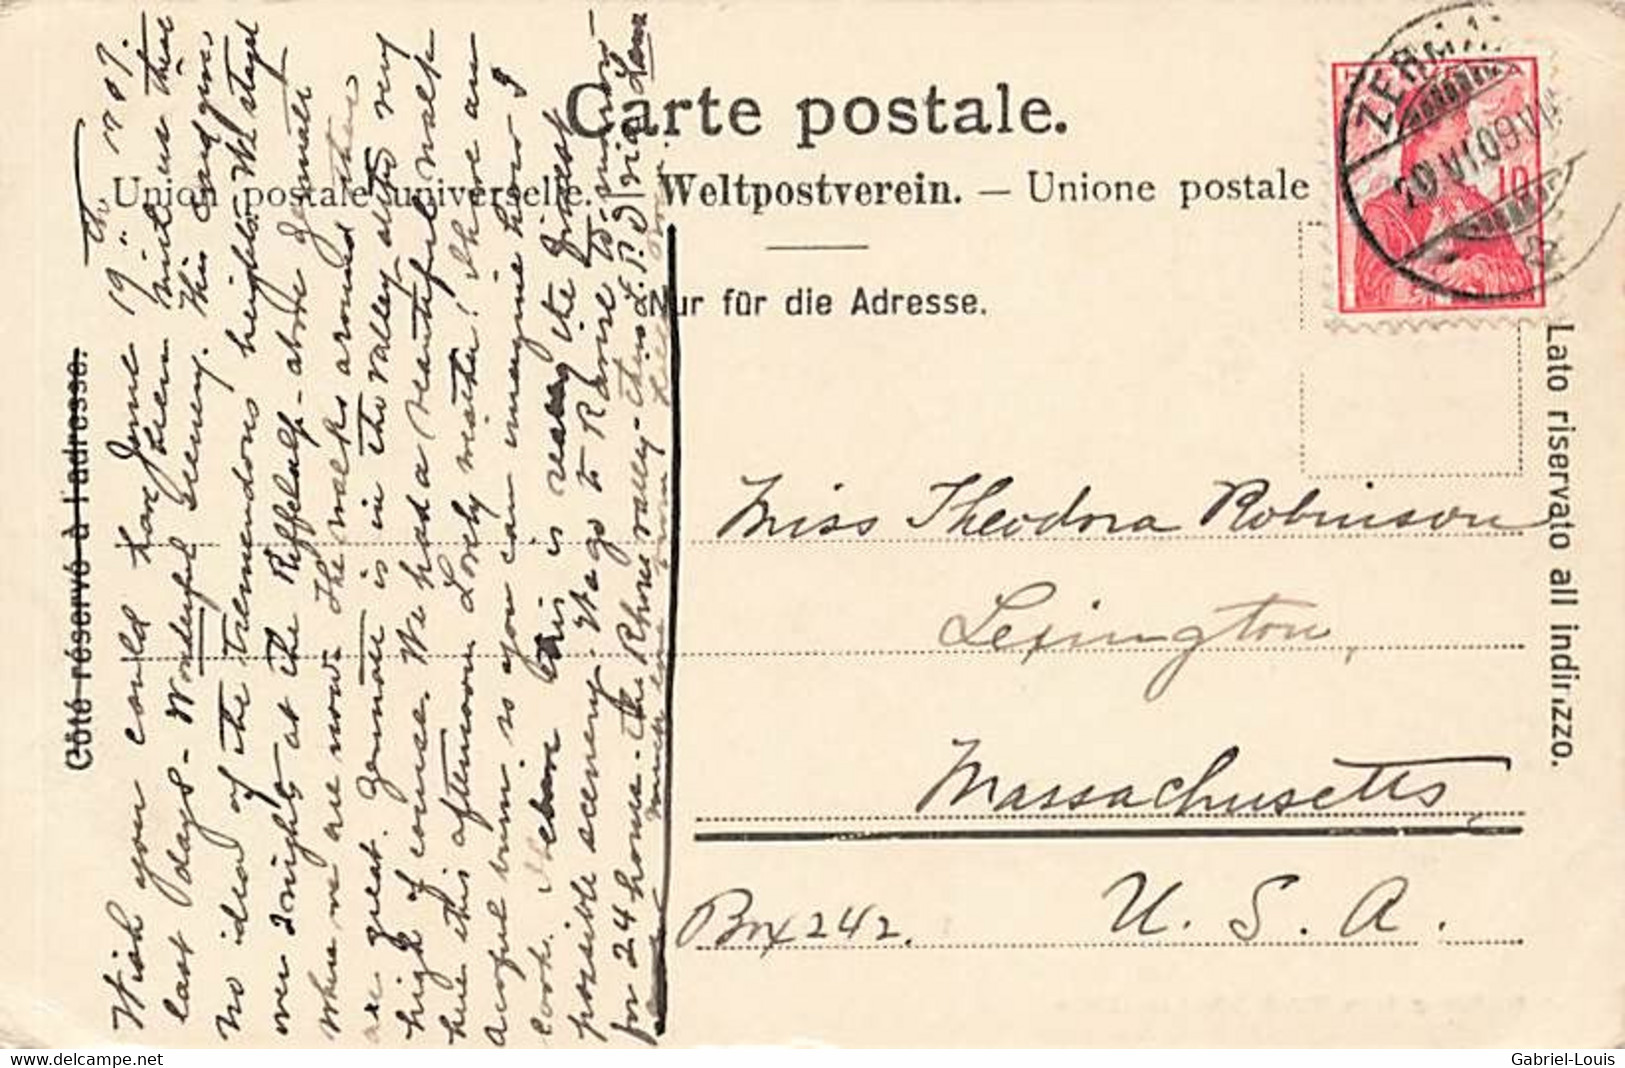 Carte postale.
Union postale universelle. — Weltpostverein. — Unione postale
Nur für die Adresse.
Côté réservé à l'adresse.
Lato riservato all indirizzo.
ZERMA
20 VI 09 VII
10
Miss Theodora Robinson
Lexington,
Massachusetts
Box 242. U. S. A.
June 19th 1909.
Wish you could have been with us these
last days - Wonderful scenery. This card gives
no idea of the tremendous heights. We stayed
over 2 nights at the Riffelalp - above Zermatt
where we are now. The walks around there
are great. Zermatt is in the valley altho very
high of course. We had a beautiful walk
here this afternoon. Lovely weather! I have an
awful burn so you can imagine how I
look. this is really the finest
possible scenery. We go to Paris to-morrow
for 24 hours - the Rhone valley -
much love from
Gabriel-Louis
https://www.delcampe.net